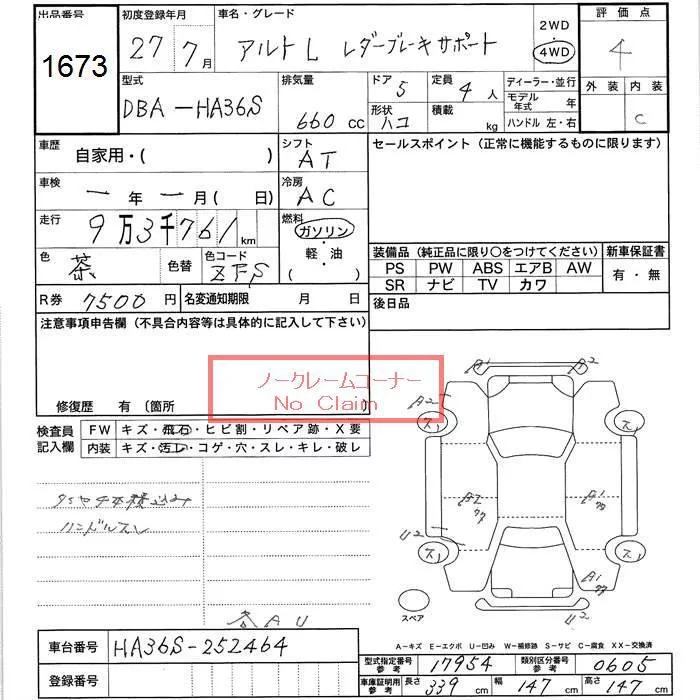 出品番号
1673
初度登録年月
27 7月
車名・グレード
アルト L レダーブレーキサポート
2WD
・
4WD
評価点
4
型式
DBA-HA36S
排気量
660 cc
ドア 5
形状 ハコ
定員 4 人
積載 kg
ディーラー・並行
モデル年式 年
ハンドル 左・右
外装 内装
C
車歴
自家用・( )
シフト
AT
セールスポイント(正常に機能するものに限ります)
車検
一年一月( 日)
冷房
AC
走行
9万3千761km
燃料
ガソリン
・
軽・油
( )
色
茶
色替
色コード
ZFS
装備品(純正品に限り○をつけてください)
新車保証書
PS PW ABS エアB AW
有・無
SR ナビ TV カワ
R券 7500 円
名変通知期限 月 日
後日品
注意事項申告欄(不具合内容等は具体的に記入して下さい)
ノークレームコーナー
No Claim
修復歴 有〔箇所
検査員記入欄
FW キズ・飛石・ヒビ割・リペア跡・X要
内装 キズ・汚レ・コゲ・穴・スレ・キレ・破レ
ハンドルスレ
各AU
A1 U2
A2
ス1 ス1
A2 A1
U2
ス1 ス1
A1
U2
スペア
A-キズ E-エクボ U-凹み W-補修跡 S-サビ C-腐食 XX-交換済
車台番号
HA36S-252464
登録番号
型式指定番号 参考 17954
類別区分番号 参考 0605
車庫証明用 参考 長さ 339 cm 幅 147 cm 高さ 147 cm